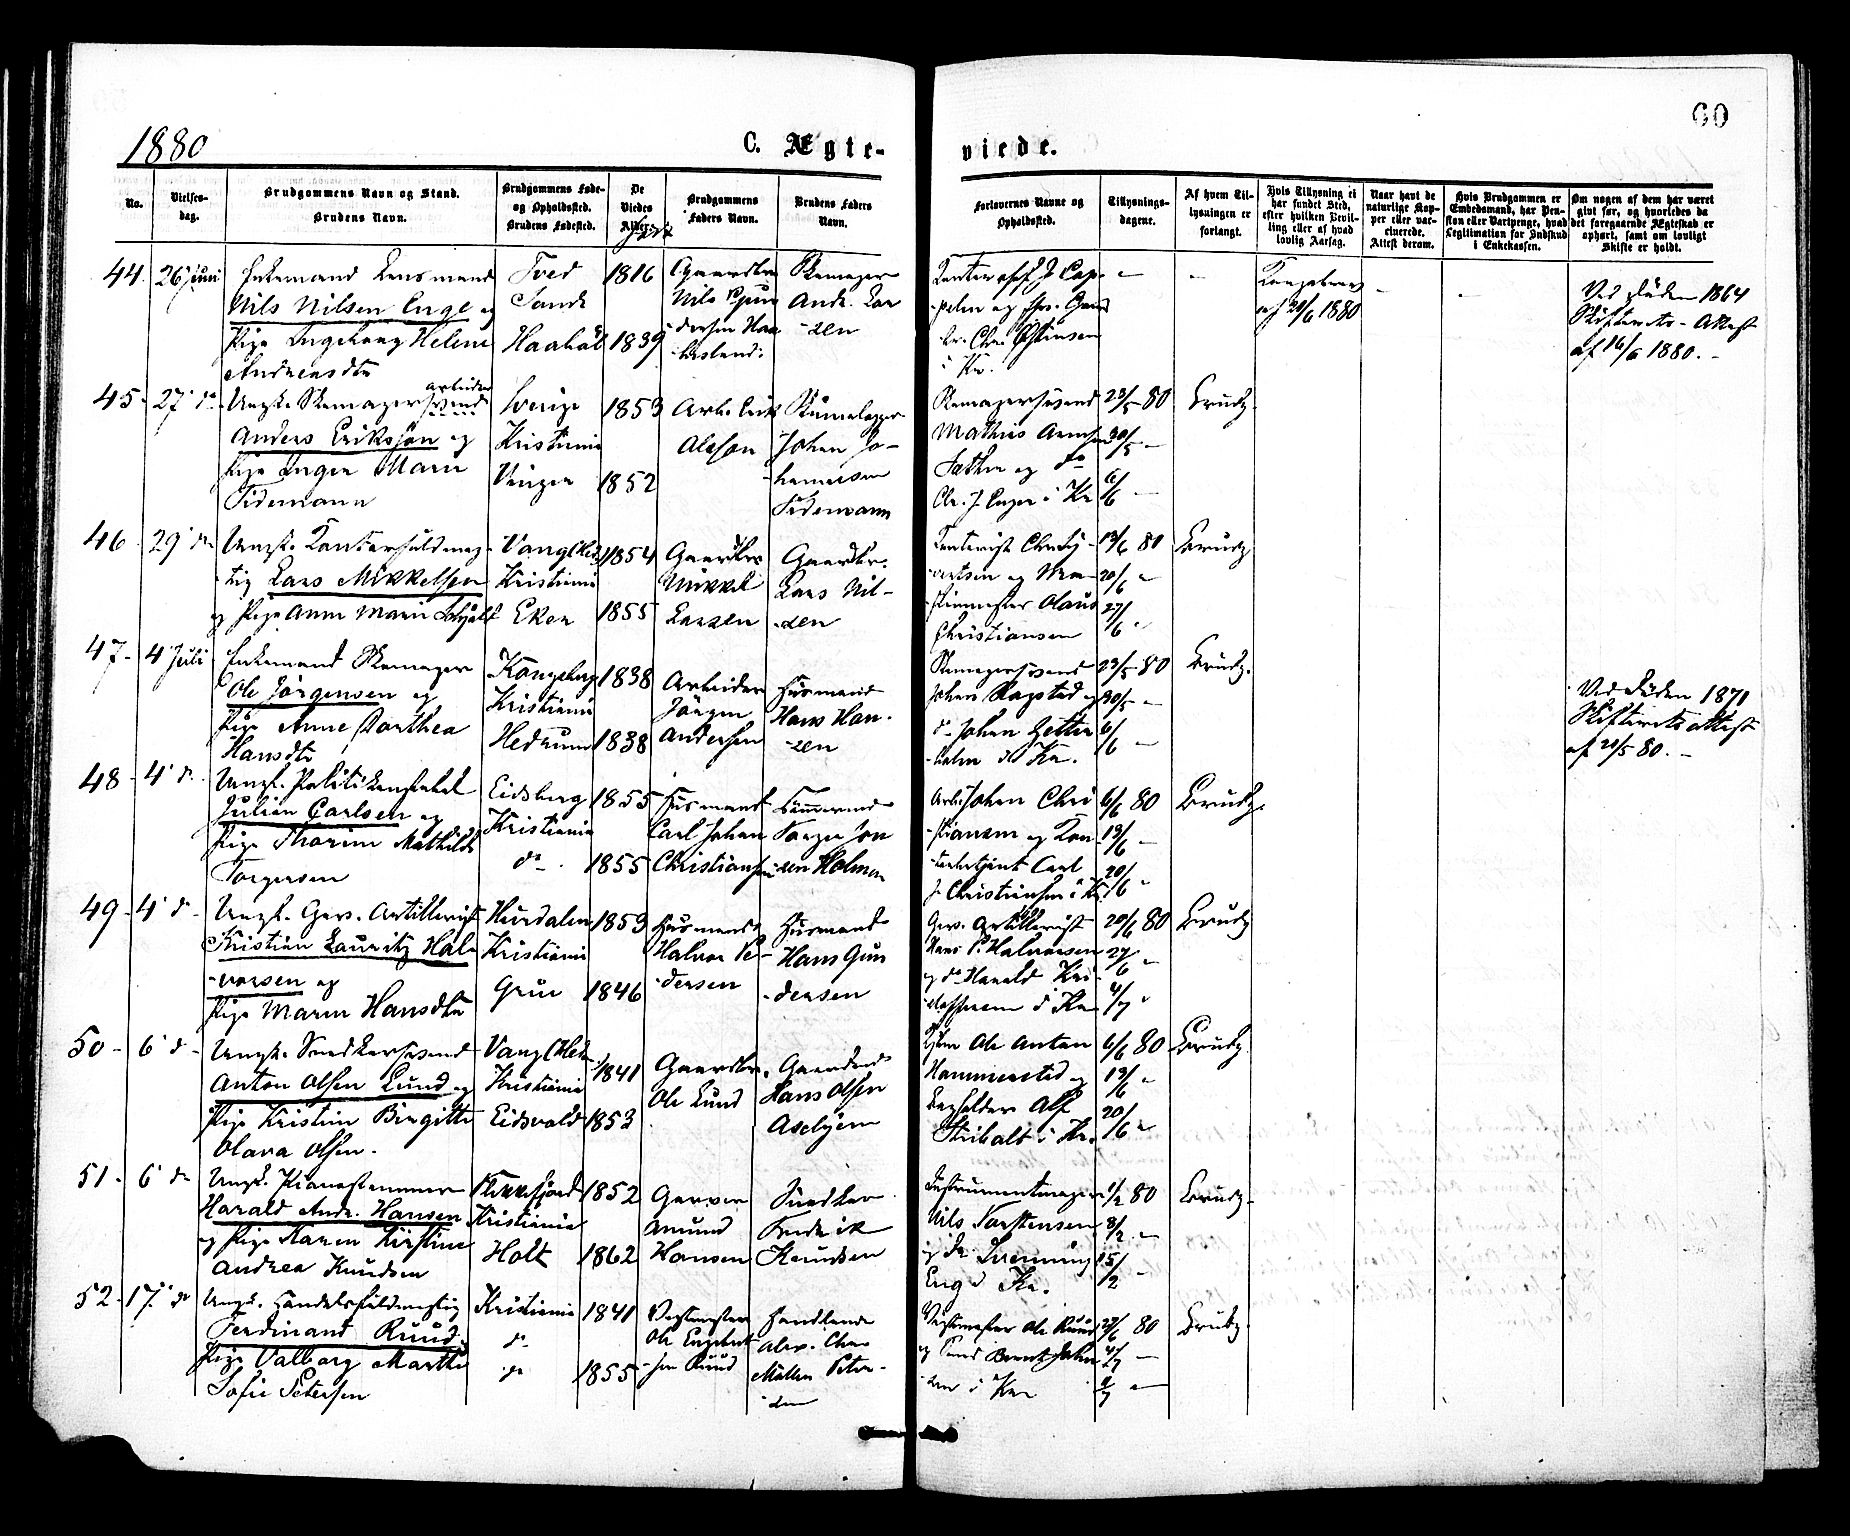 1880
C. Ægte-
viede.
60
No.
Vielses-
dag.
Brudgommens Navn og Stand.
Brudens Navn.
Brudgommens Føde-
og Opholdssted.
Brudens Fødested.
De
Viedes
Alder.
Brudgommens
Faders Navn.
Brudens Faders
Navn.
Forlovernes Navne og
Opholdssted.
Tillysnings-
dagene.
Af hvem Til-
lysningen er
forlangt.
Hvis Tillysning ei
har fundet Sted,
efter hvilken Bevil-
ling eller af hvad
lovlig Aarsag.
Naar havt de
naturlige Kop-
per eller vac-
cinerede.
Attest derom.
Hvis Brudgommen er
Embedsmand, har Pen-
sion eller Vartpenge, hvad
Legitimation for Indskud
i Enkekassen.
Om nogen af dem har været
givt før, og hvorledes da
det foregaaende Ægteskab er
ophørt, samt om lovligt
Skifte er holdt.
44. 26 Juni
Enkemand Lensmand
Nils Nilsen Enge og
Pige Ingeborg Helene
Andreasdtr
Tved
Sande
1816
1839
Gaardbr.
Nils
Skomager
Andr. Lar
-sen
i Kr.
20/6 1880
Ved Døden 1864
Skifterets-Attest
af 16/6 1880. -
45- 27 do
Ungk. Skomagersvend
arbeider
Anders Eriksson og
Pige Inger Marie
Tidemann
Sverige
Kristiania
Vinger
1853
1852
Arb. Erik
Olsson
Johan Jo-
hannesen
Tidemann
Skomagersvend
Mathias
Sæther og do
Chr. J. Enger i Kr
23/5 80
30/5 -
6/6 -
Brudg.
46 29 do
Ungk. Kontorfuldmæg-
tig Lars Mikkelsen
og Pige Anne Marie
Vang (Hed.)
Kristiania
Eker
1854
1855
Gaardbr.
Mikkel
Larsen
Gaardbr.
Lars Nil-
-sen
Kontorist
Olaus
Christiansen
13/6 80
20/6 -
27/6 -
Brudg.
47- 4 Juli
Enkemand Skomager
Ole Jørgensen og
Pige Anne Dorthea
Hansdtr
Kongsberg
Kristiania
Hedrum
1838
1838
Arbeider
Jørgen
Andersen
Husmand
Hans Han-
-sen
Skomagersvend
Johan Ragstad og
do Johan Zetter
holm i Kr.
23/5 80
30/5 -
6/6 -
Brudg.
Ved Døden 1871
Skifteretsattest
af 20/5 80. -
48 - 4 do
Ungk. Politikonstabel
Julian Carlsen og
Pige Thorine Mathilde
Torgersen
Eidsberg
Kristiania
do
1855
1855
Husmand
Carl Johan
Christiansen
Tømmermand
Torger Jon
-sen Holmen
Arb. Johan Chri
-stiansen og Kon-
-torbetjent Carl
J. Christiansen i Kr.
6/6 80
13/6 -
20/6 -
Brudg.
49- 4 do
Ungk. Gev. Artillerist
Kristian Lauritz Hal-
-vorsen og
Pige Maren Hansdtr
Hurdalen
Kristiania
Grue
1853
1846
Husmand
Halvor Pe-
-dersen
Husmand
Hans Gun
-dersen
Gev. Artillerist
Hans P. Halvorsen
og do Harald Kri-
-stoffersen i Kr
20/6 80
27/6 -
4/7 -
Brudg.
50- 6 do
Ungk. Snedkersvend
Anton Olsen Lund og
Pige Kristine Birgitte
Olava Olsen.
Vang (Hed.)
Kristiania
Eidsvold
1841
1853
Gaardbr.
Ole Lund
Gaardbr.
Hans Olsen
Asebjern
Ole Anton
Hammerstad og
Alf
i Kr.
6/6 80
13/6 -
20/6 -
Brudg.
51- 6 do
Ungk. Pianostemmer
Harald Andr. Hansen
og Pige Karen Kirstine
Andrea Knudsen
Flekkefjord
Kristiania
Holt
1852
1862
Garver
Amund
Hansen
Snedker
Fredrik
Knudsen
Instrumentmager
Nils Torstensen
og do Svenning
Eng i Kr.
1/2 80
8/2 -
15/2 -
Brudg.
52- 17 do
Ungk. Handelsfuldmægtig
Ferdinand Ruud
Pige Valborg Marthe
Sofie Petersen
Kristiania
do
do
1841
1855
Ole Engebret
-sen Ruud
Handlende
Alex. Chr.
Møller Peter-
-sen
Ole Ruud
og Bernt Johan
-sen i Kr
27/6 80
4/7 -
Brudg.